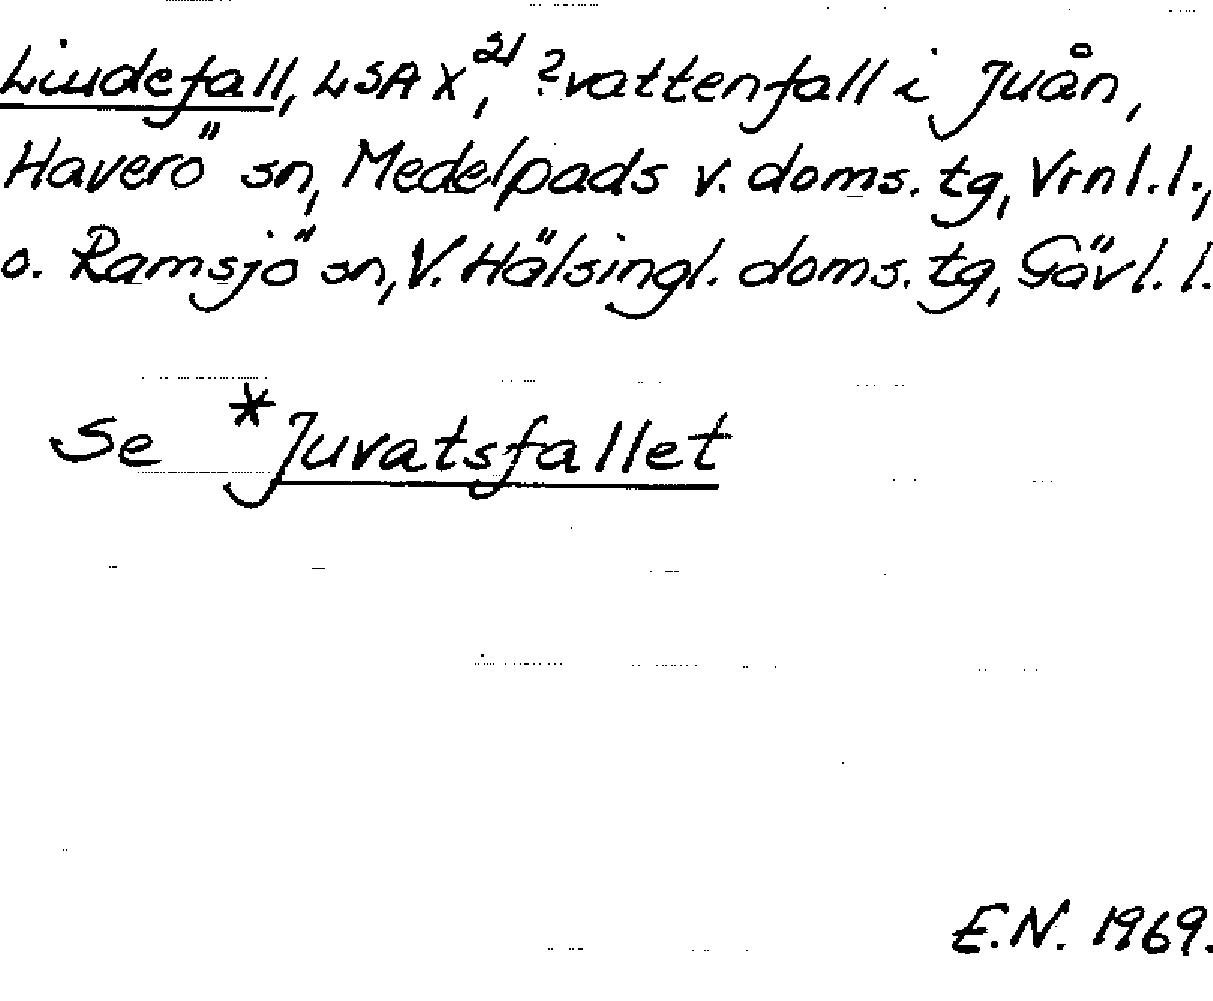 Liudefall, LSA X,²¹ ?vattenfall i Juån,
Haverö sn, Medelpads v. doms. tg, Vrnl.l.,
o. Ramsjö sn, V. Hälsingl. doms. tg, Gävl. l.
Se *Juvatsfallet
E.N. 1969.